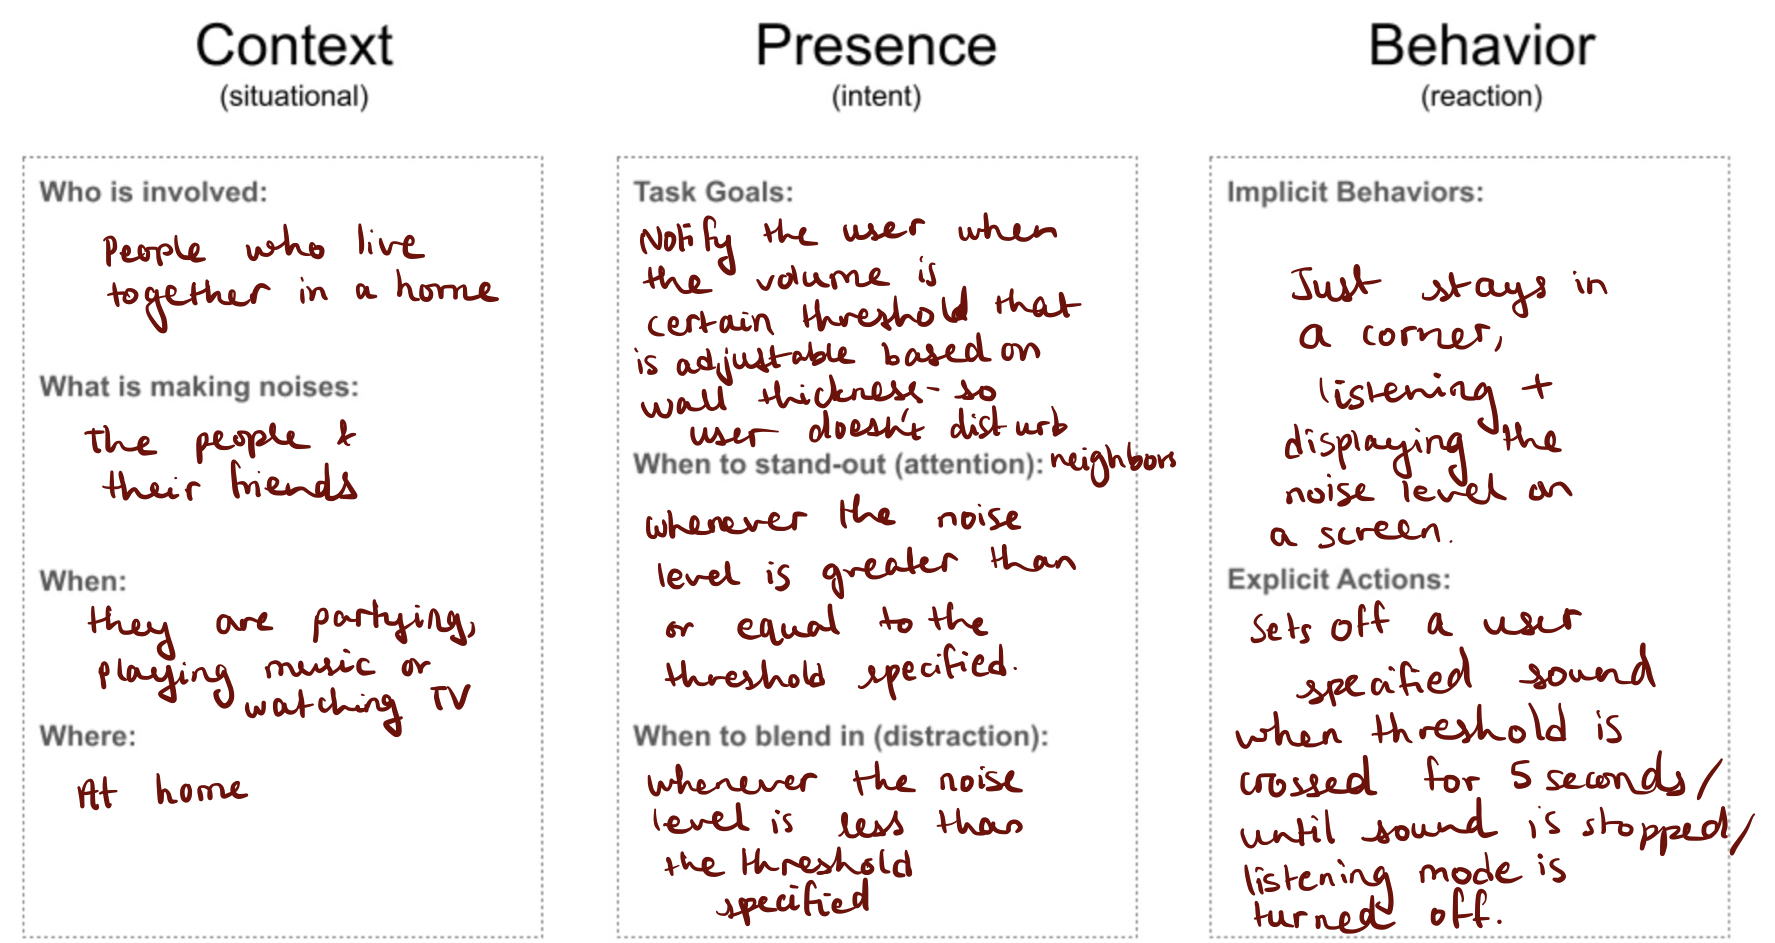 Context
(situational)
Who is involved:
People who live
together in a home
What is making noises:
the people &
their friends
When:
they are partying,
playing music or
watching TV
Where:
At home
Presence
(intent)
Task Goals:
Notify the user when
the volume is
certain threshold that
is adjustable based on
wall thickness - so
user doesn't disturb
neighbors
When to stand-out (attention):
whenever the noise
level is greater than
or equal to the
threshold specified.
When to blend in (distraction):
whenever the noise
level is less than
the threshold
specified
Behavior
(reaction)
Implicit Behaviors:
Just stays in
a corner,
listening +
displaying the
noise level on
a screen.
Explicit Actions:
Sets off a user
specified sound
when threshold is
crossed for 5 seconds/
until sound is stopped/
listening mode is
turned off.